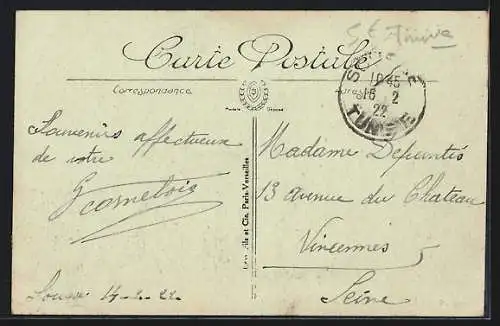 Carte Postale
Correspondance
SOUSSE
10 45
16 2
22
TUNISIE
Souvenirs affectueux
de votre
Madame
13 avenue du Chateau
Vincennes
Seine
Sousse 14-2-22
Lévy Fils et Cie, Paris-Versailles